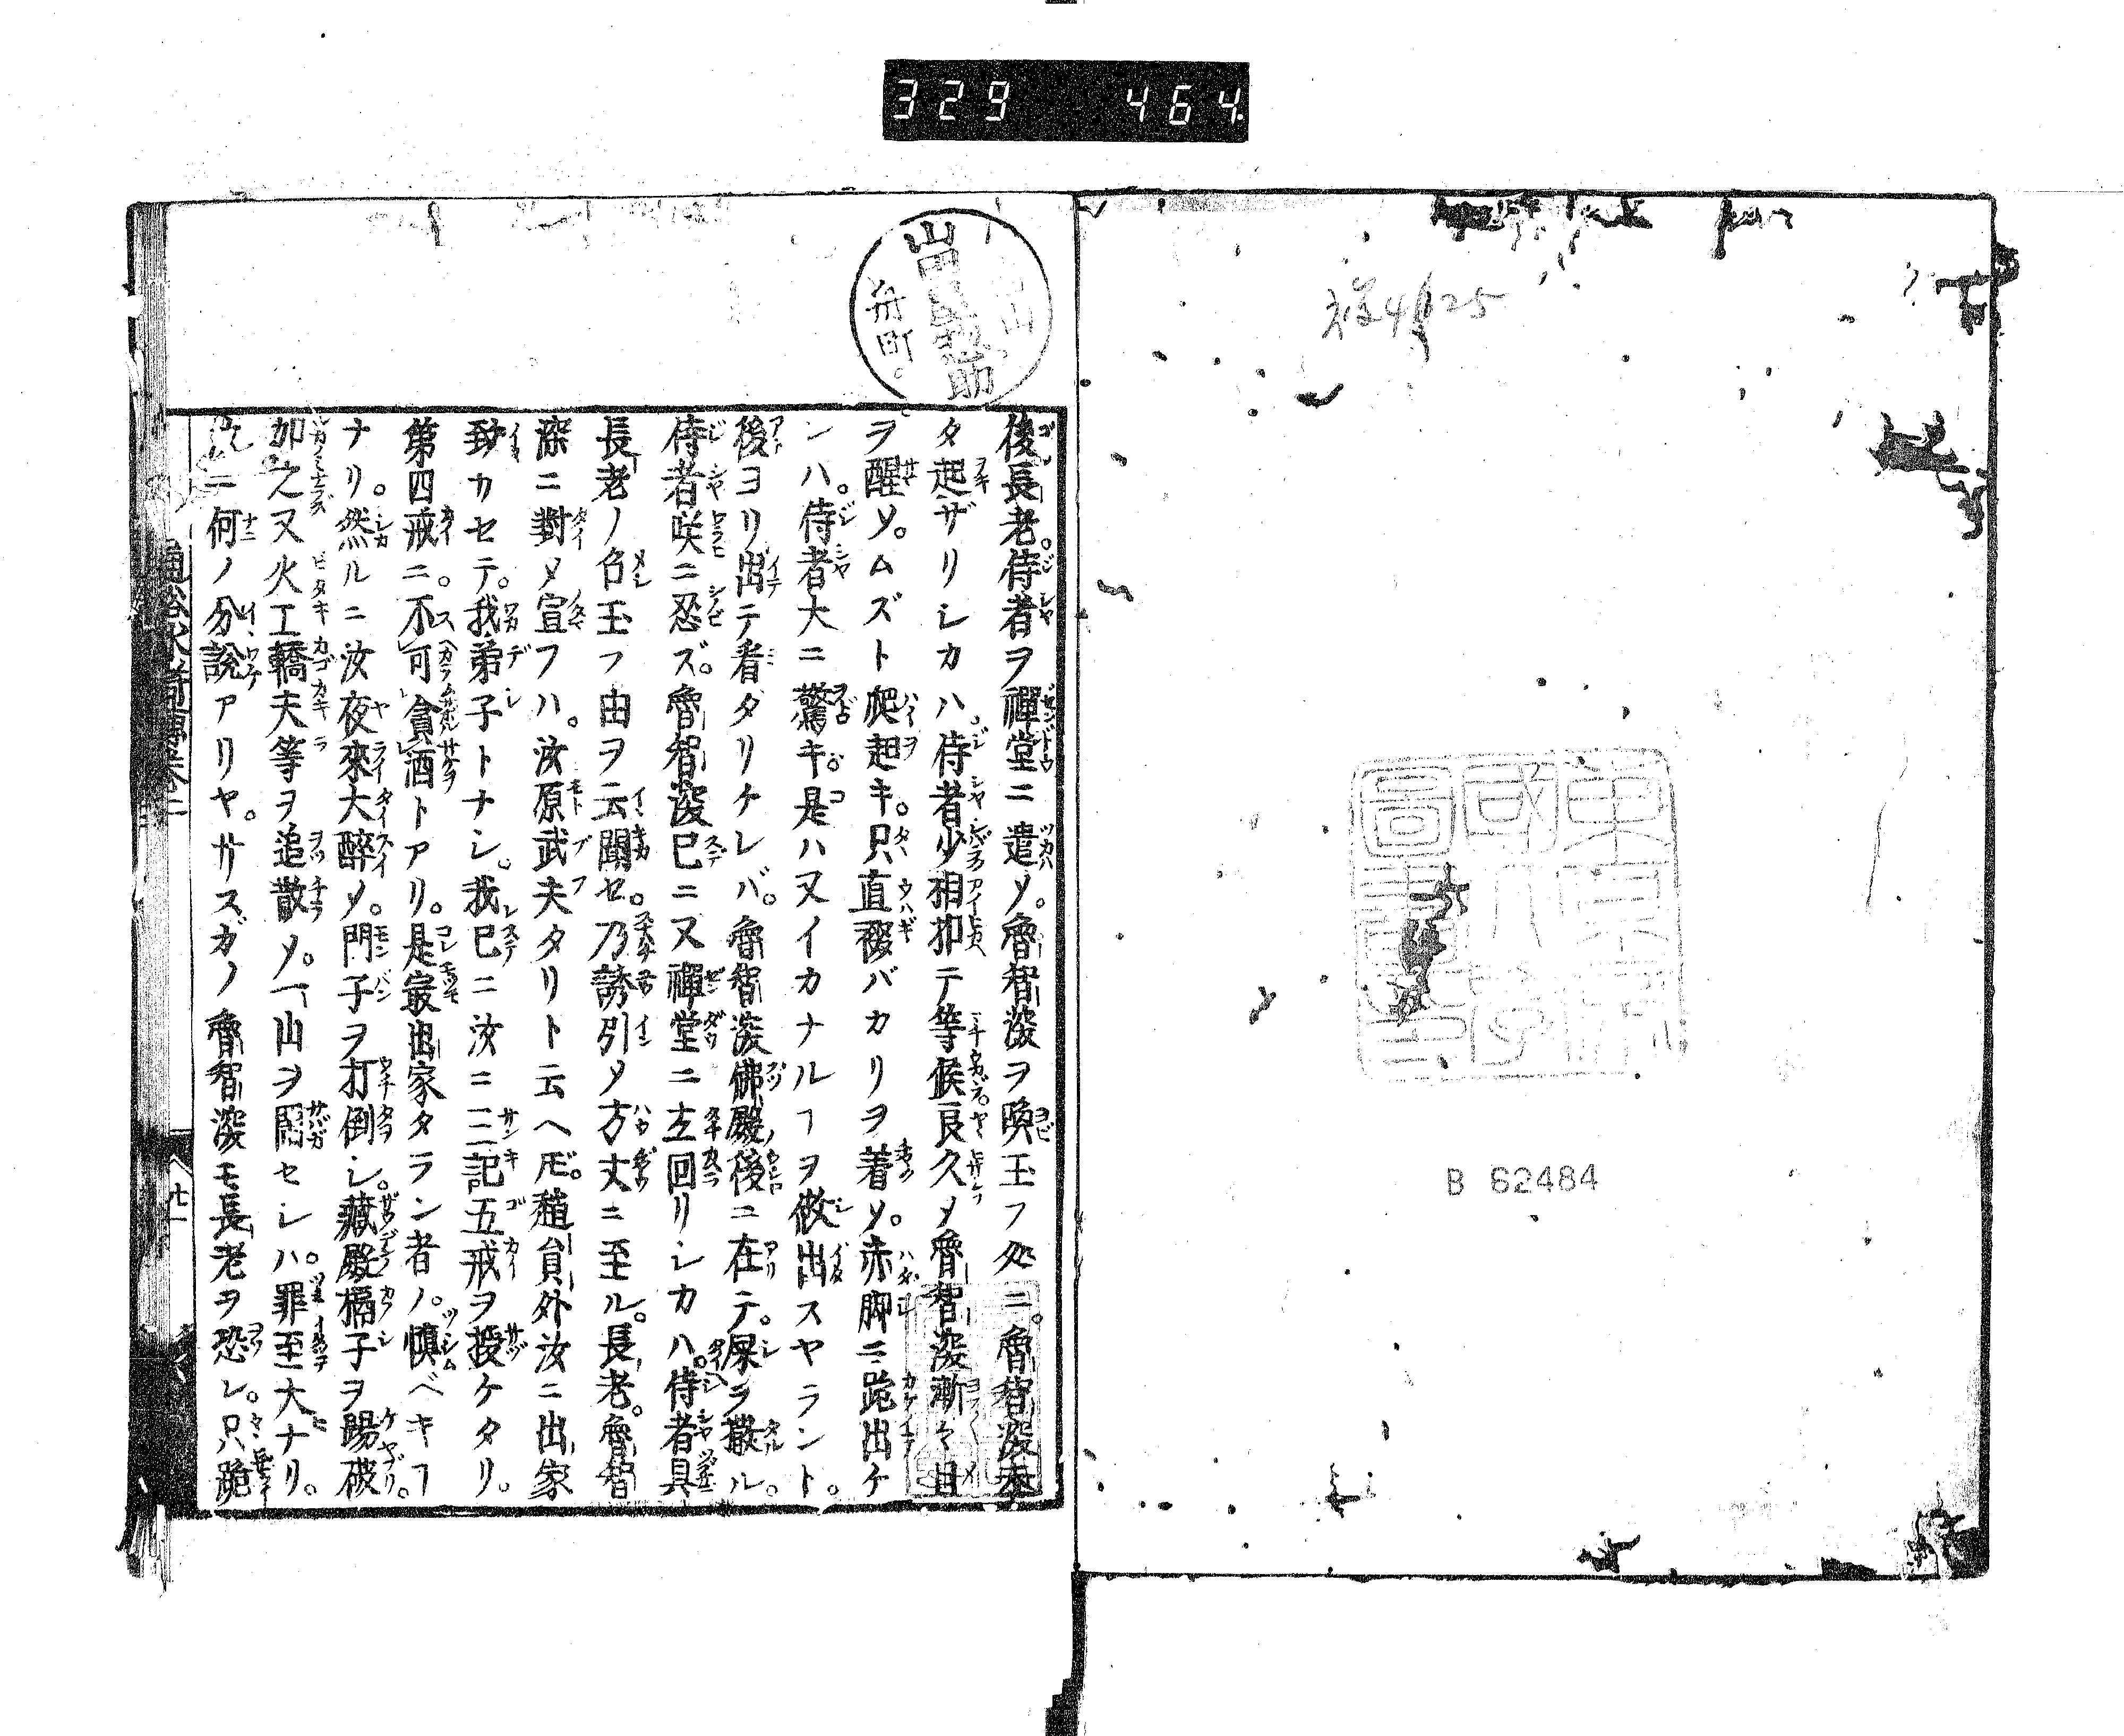 329 464
4625
東京
帝国大学
図書印
B 62484
山
舟町。
後長老。侍者ヲ禪堂ニ遣ソ。魯智深ヲ喚玉フ処ニ。魯智深未
タ起ザリシカハ。侍者少相抑テ等候良久メ魯智深漸々目
ヲ醒ソ。ムズト爬起キ。只直裰バカリヲ着ソ。赤脚ニ跑出ケ
ンハ。侍者大ニ驚キ。是ハ又イカナルヿヲ做出スヤラント。
後ヨリ出テ看タリケレバ。魯智深佛殿後ニ在テ。屎ヲ撒ル。
侍者咲ニ忍ズ。魯智深已ニ又禪堂ニ立回リシカハ。侍者具
長老ノ召玉フ由ヲ云聞セ。乃誘引メ方丈ニ至ル。長老。魯智
深ニ對メ宣フハ。汝原武夫タリト云ヘ𪜈。趙員外汝ニ出家
致カセテ。我弟子トナシ。我已ニ汝ニ三記五戒ヲ授ケタリ。
第四戒ニ。不可貪酒トアリ。是最出家タラン者ノ。慎ベキヿ
ナリ。然ルニ汝夜來大醉ソ。門子ヲ打倒シ。藏殿槅子ヲ踢破
加之又火工轎夫等ヲ追散メ。一山ヲ閙セシハ。罪至大ナリ。
ニ何ノ分説アリヤ。サスガノ魯智深モ長老ヲ恐レ。只跪
通俗水滸傳卷二
廿一